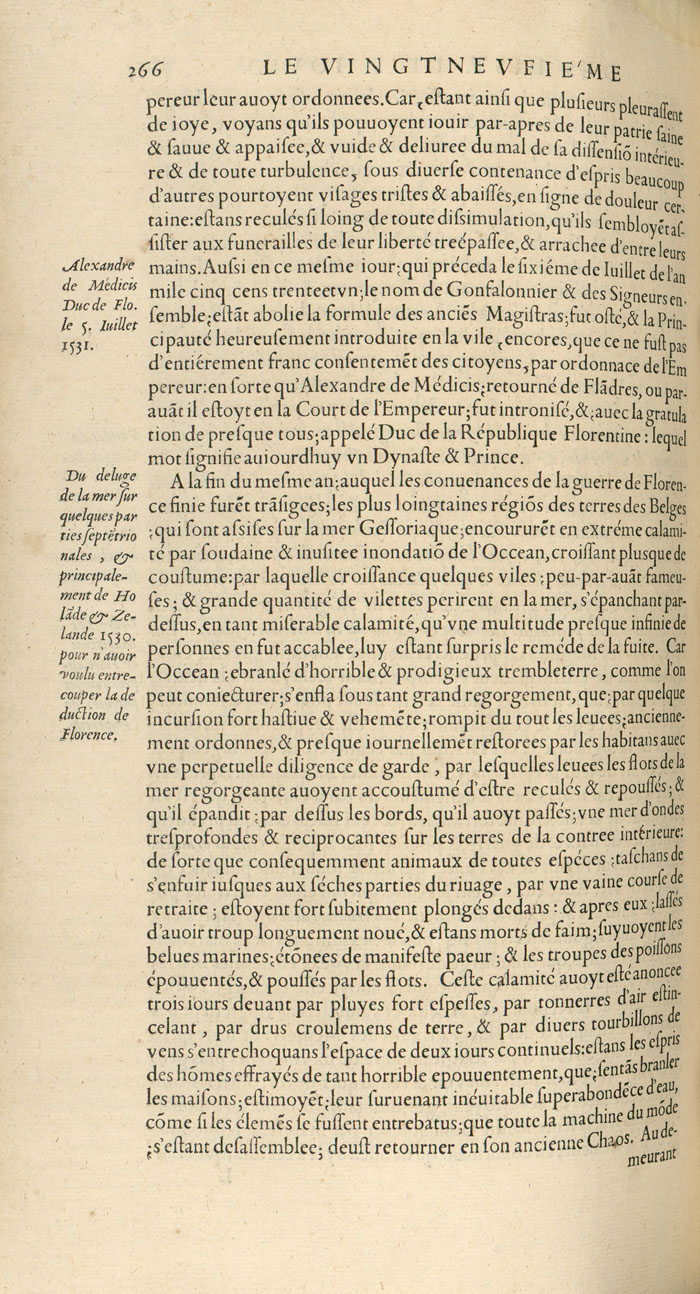 266 LE VINGTNEVFIE'ME
pereur leur auoyt ordonnees.Car,eſtant ainſi que pluſieurs pleuraſſent
de ioye, voyans qu'ils pouuoyent iouir par-apres de leur patrie ſaine
& ſauue & appaiſee,& vuide & deliuree du mal de ſa diſſenſiō intérieu-
re & de toute turbulence, ſous diuerſe contenance d'eſpris beaucoup
d'autres pourtoyent viſages triſtes & abaiſſés,en ſigne de douleur cer-
taine:eſtans reculés ſi loing de toute diſsimulation,qu'ils ſembloyēt aſ-
ſiſter aux funerailles de leur liberté treépaſſee,& arrachee d'entre leurs
mains.Auſsi en ce meſme iour;qui préceda le ſixiéme de Iuillet de l'an
mile cinq cens trenteetvn;le nom de Gonfalonnier & des Signeurs en-
ſemble;eſtāt abolie la formule des anciēs Magiſtras;fut oſté,& la Prin-
cipauté heureuſement introduite en la vile ,encores,que ce ne fuſt pas
d'entiérement franc conſentemēt des citoyens,par ordonnace de l'Em
pereur:en ſorte qu'Alexandre de Médicis;retourné de Flādres, ou par-
auāt il eſtoyt en la Court de l'Empereur;fut introniſé,&;auec la gratula
tion de preſque tous;appelé Duc de la République Florentine : lequel
mot ſignifie auiourdhuy vn Dynaſte & Prince.
Alexandre
de Médicis
Duc de Flo.
le 5. Iuillet
1531.
A la fin du meſme an;auquel les conuenances de la guerre de Floren-
ce finie furēt trāſigees;les plus loingtaines régiōs des terres des Belges
;qui ſont aſsiſes ſur la mer Geſſoriaque;encoururēt en extréme calami-
té par ſoudaine & inuſitee inondatiō de l'Occean,croiſſant plusque de
couſtume:par laquelle croiſſance quelques viles ;peu-par-auāt fameu-
ſes ; & grande quantité de vilettes perirent en la mer, s'épanchant par-
deſſus,en tant miſerable calamité,qu'vne multitude preſque infinie de
perſonnes en fut accablee,luy eſtant ſurpris le reméde de la fuite. Car
l'Occean ;ebranlé d'horrible & prodigieux trembleterre, comme l'on
peut coniecturer;s'enfla ſous tant grand regorgement, que;par quelque
incurſion fort haſtiue & vehemēte;rompit du tout les leuees;ancienne-
ment ordonnes,& preſque iournellemēt reſtorees par les habitans auec
vne perpetuelle diligence de garde , par leſquelles leuees les flots de la
mer regorgeante auoyent accouſtumé d'eſtre reculés & repouſſés; &
qu'il épandit ;par deſſus les bords, qu'il auoyt paſſés;vne mer d'ondes
treſprofondes & reciprocantes ſur les terres de la contree intérieure:
de ſorte que conſequemment animaux de toutes eſpéces ;taſchans de
s'enfuir iuſques aux ſéches parties du riuage , par vne vaine courſe de
retraite ; eſtoyent fort ſubitement plongés dedans : & apres eux ;laſſés
d'auoir troup longuement noué,& eſtans morts de faim;ſuyuoyent les
belues marines;étōnees de manifeſte paeur ; & les troupes des poiſſons
épouuentés,& pouſſés par les flots. Ceſte calamité auoyt eſté anoncee
trois iours deuant par pluyes fort eſpeſſes, par tonnerres d'air eſtin-
celant , par drus croulemens de terre, & par diuers tourbillons de
vens s'entrechoquans l'eſpace de deux iours continuels:eſtans les eſpris
des hōmes effrayés de tant horrible epouuentement,que;ſentās branler
les maiſons;eſtimoyēt;leur ſuruenant inéuitable ſuperabondēce d'eau,
cōme ſi les élemēs ſe fuſſent entrebatus;que toute la machine du mōde
;s'eſtant deſaſſemblee; deuſt retourner en ſon ancienne Chaos. Au de-
meurant
Du deluge
de la mer ſur
quelques par
ties ſeptētrio
nales , &
principale-
ment de Ho
lāde & Ze-
lande 1530.
pour n'auoir
voulu entre-
couper la de
duction de
Florence.